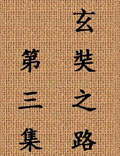 玄奘之路
第三集